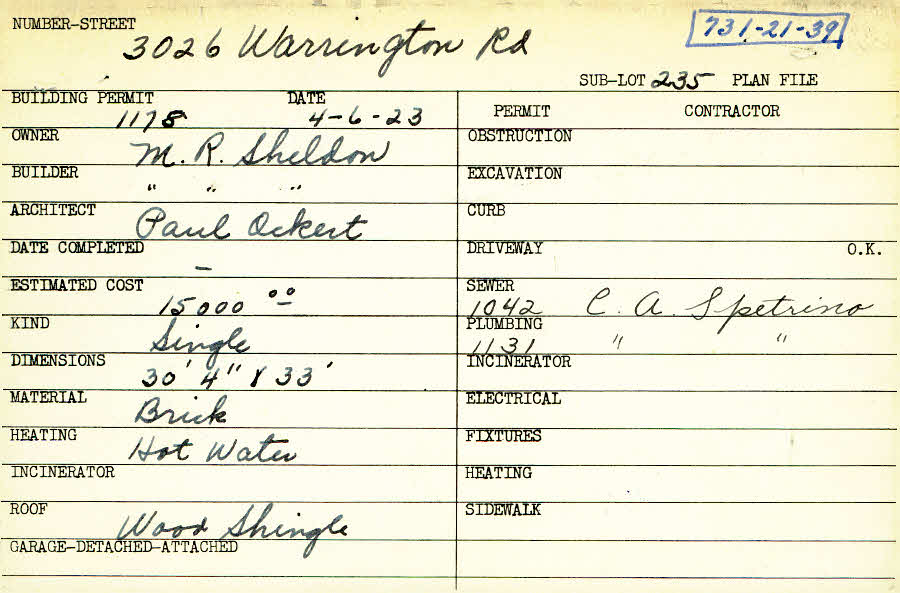 NUMBER-STREET
3026 Warrington Rd
731-21-39
SUB-LOT 235 PLAN FILE
BUILDING PERMIT DATE
1178 4-6-23
OWNER
M. R. Sheldon
BUILDER
" " "
ARCHITECT
Paul Ockert
DATE COMPLETED
—
ESTIMATED COST
15000 00
KIND
Single
DIMENSIONS
30' 4" X 33'
MATERIAL
Brick
HEATING
Hot Water
INCINERATOR
ROOF
Wood Shingle
GARAGE-DETACHED-ATTACHED
PERMIT CONTRACTOR
OBSTRUCTION
EXCAVATION
CURB
DRIVEWAY O.K.
SEWER
1042 C. A. Spetrino
PLUMBING
1131 " "
INCINERATOR
ELECTRICAL
FIXTURES
HEATING
SIDEWALK